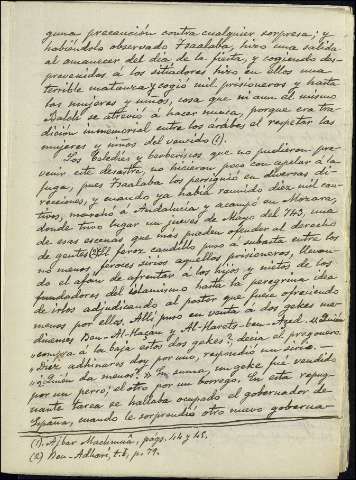 guna precaución contra cualquier sorpresa; y
habiéndolo observado Tsaalaba, hizo una salida
al amanecer del día de la fiesta, y cogiendo des-
prevenidos a los sitiadores hizo en ellos una
terrible matanza y cogió mil prisioneros y hasta
las mujeres y niños, cosa que ni aun el mismo
Baleg se atrevió a hacer nunca, porque era tra-
dición inmemorial entre los árabes el respetar las
mujeres y niños del vencido (1).
Los beledíes y berberiscos que no pudieron pre-
venir este desastre, no hicieron poco con apelar a la
fuga, pues Tsaalaba los persiguió en diversas di-
recciones, y cuando ya había reunido diez mil cau-
tivos, marchó a Andalucía y acampó en Mozara,
donde tuvo lugar un jueves de Mayo del 743, una
de esas escenas que más pueden ofender al derecho
de gentes (2). El feroz caudillo puso a subasta entre los
no menos feroces sirios aquellos prisioneros, llevan-
do el afán de afrentar a los hijos y nietos de los
fundadores del islamismo hasta la peregrina idea
de irlos adjudicando al postor que fuese ofreciendo
menos por ellos. Allí puso en venta a dos gekes me-
dineses Ben-Al-Haçan y Al-Harets-ben-Açed. «¿Quién
compra a la baja estos dos gekes?, decía el pregonero.
-Diez adhinares doy por uno, respondió un sirio. -
¿Quién da menos?» En suma, un geke fué vendido
por un perro; el otro por un borrego. En esta repug-
nante tarea se hallaba ocupado el gobernador de
España, cuando le sorprendió otro nuevo goberna-
(1). Ajbar Machmuâ, págs. 44 y 45.
(2) Ben-Adhari, t. II, p. 79.